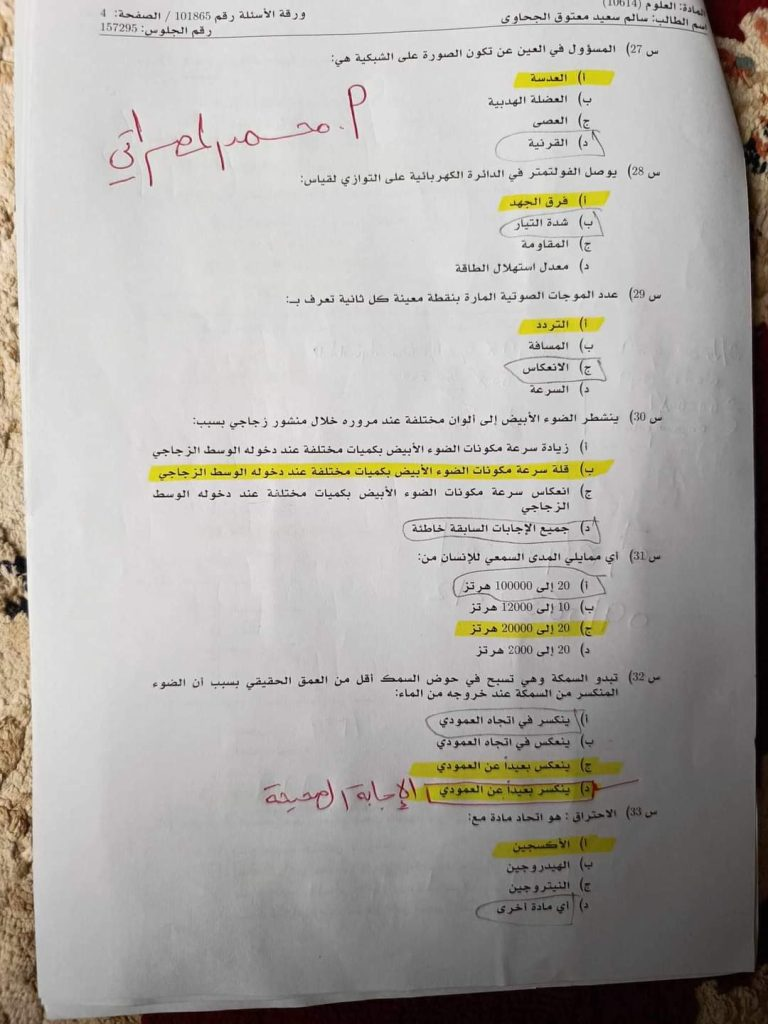 المادة: العلوم (10614)
اسم الطالب: سالم سعيد معتوق الجحاوي
ورقة الأسئلة رقم 101865 / الصفحة: 4
رقم الجلوس: 157295
س 27) المسؤول في العين عن تكون الصورة على الشبكية هي:
أ) العدسة
ب) العضلة الهدبية
ج) العصى
د) القرنية
م. محمد المصراتي
س 28) يوصل الفولتمتر في الدائرة الكهربائية على التوازي لقياس:
أ) فرق الجهد
ب) شدة التيار
ج) المقاومة
د) معدل استهلال الطاقة
س 29) عدد الموجات الصوتية المارة بنقطة معينة كل ثانية تعرف بـ:
أ) التردد
ب) المسافة
ج) الانعكاس
د) السرعة
س 30) ينشطر الضوء الأبيض إلى ألوان مختلفة عند مروره خلال منشور زجاجي بسبب:
أ) زيادة سرعة مكونات الضوء الأبيض بكميات مختلفة عند دخوله الوسط الزجاجي
ب) قلة سرعة مكونات الضوء الأبيض بكميات مختلفة عند دخوله الوسط الزجاجي
ج) انعكاس سرعة مكونات الضوء الأبيض بكميات مختلفة عند دخوله الوسط
الزجاجي
د) جميع الإجابات السابقة خاطئة
س 31) أي ممايلي المدى السمعي للإنسان من:
أ) 20 إلى 100000 هرتز
ب) 10 إلى 12000 هرتز
ج) 20 إلى 20000 هرتز
د) 20 إلى 2000 هرتز
س 32) تبدو السمكة وهي تسبح في حوض السمك أقل من العمق الحقيقي بسبب أن الضوء
المنكسر من السمكة عند خروجه من الماء:
أ) ينكسر في اتجاه العمودي
ب) ينعكس في اتجاه العمودي
ج) ينعكس بعيداً عن العمودي
د) ينكسر بعيداً عن العمودي
الإجابة الصحيحة
س 33) الاحتراق : هو اتحاد مادة مع:
أ) الأكسجين
ب) الهيدروجين
ج) النيتروجين
د) أي مادة أخرى